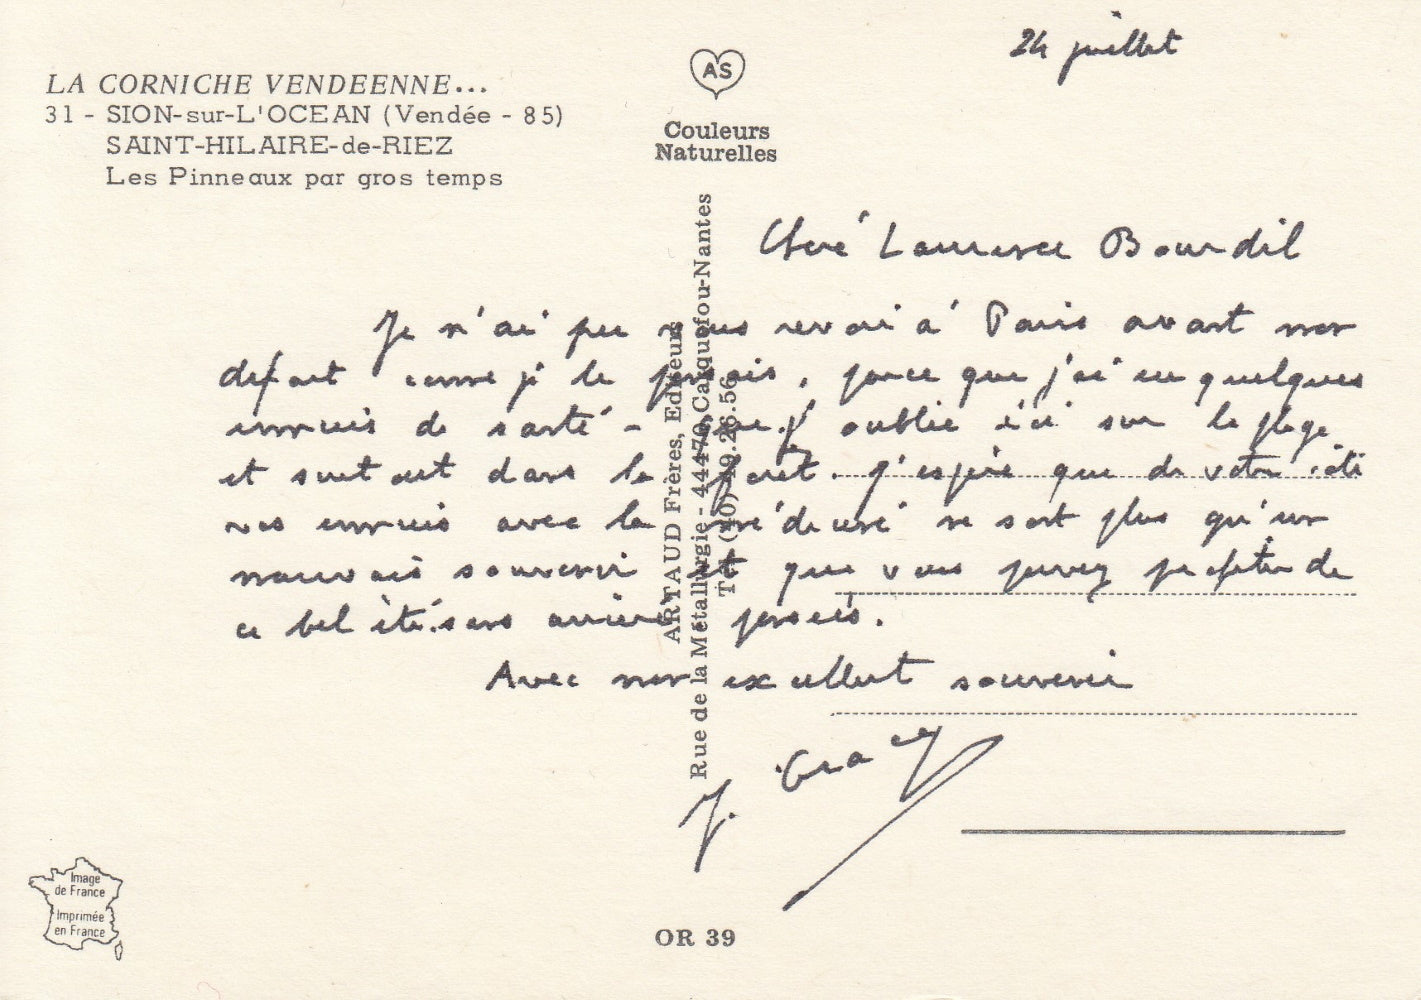 24 juillet
LA CORNICHE VENDEENNE...
31 - SION-sur-L'OCEAN (Vendée - 85)
SAINT-HILAIRE-de-RIEZ
Les Pinneaux par gros temps
AS
Couleurs
Naturelles
ARTAUD Frères, Editeurs
Rue de la Métallurgie - 44470 Carquefou-Nantes
Tél (40) 49.26.56
Chère Laurence Bourdil
Je n'ai pu vous revoir à Paris avant mon
départ comme je le pensais, parce que j'ai eu quelques
ennuis de santé - que j'oublie ici sur la plage
et surtout dans la forêt. J'espère que de votre côté
vos ennuis avec la médecine ne sont plus qu'un
mauvais souvenir et que vous pouvez profiter de
ce bel été sans arrière pensées.
Avec mon excellent souvenir
J. Gracq
Image
de France
Imprimée
en France
OR 39